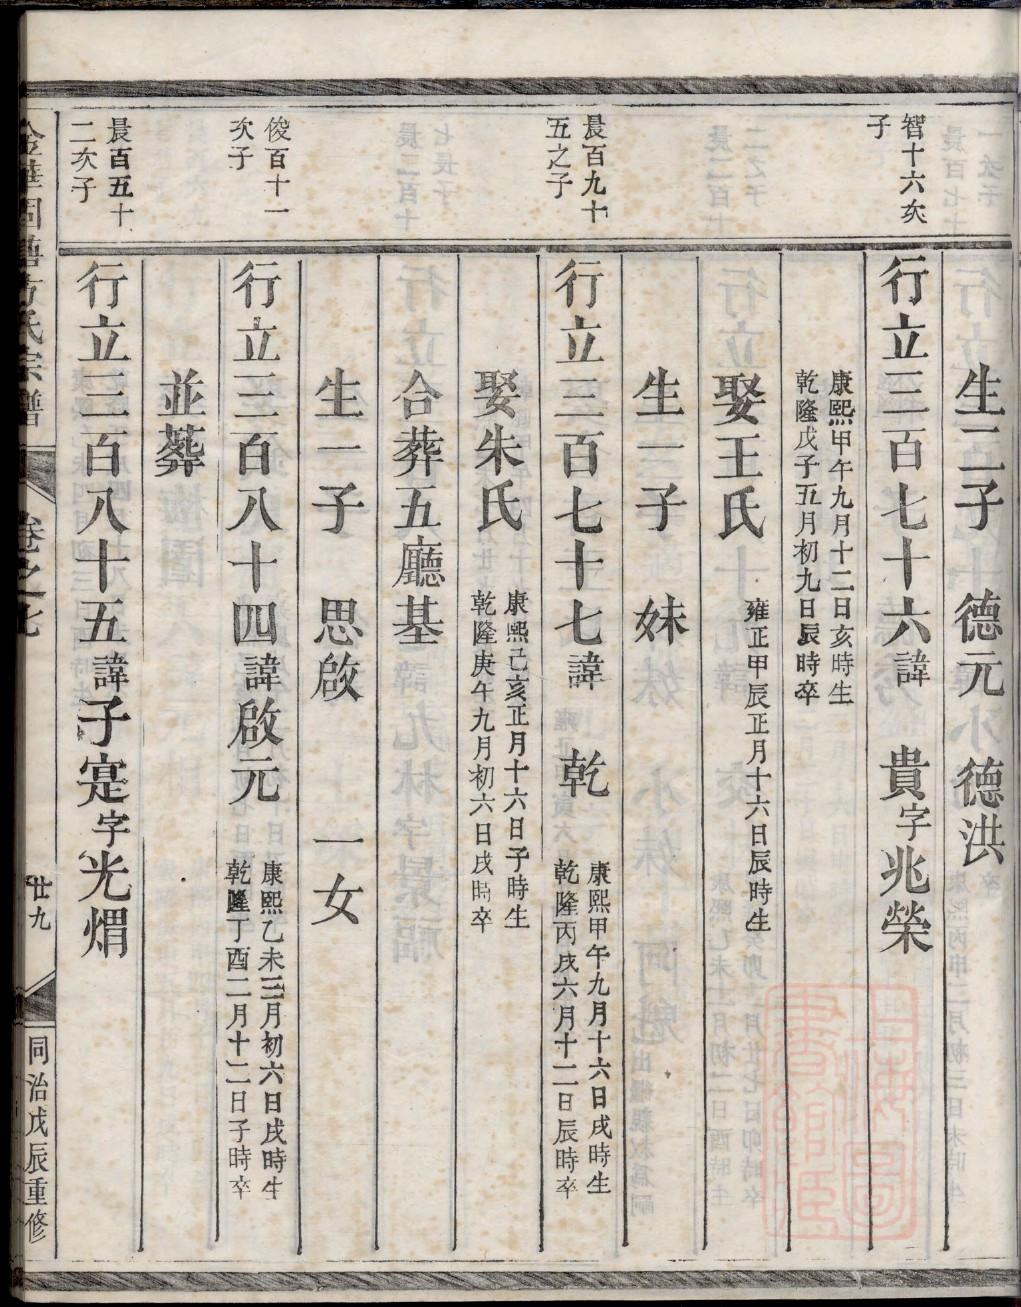 生二子　德元　德洪
智十六次子
行立三百七十六諱　貴字兆榮
康熙甲午九月十二日亥時生
乾隆戊子五月初九日辰時卒
娶王氏　雍正甲辰正月十六日辰時生
生一子　妹
晨百九十五之子
行立三百七十七諱　乾　康熙甲午九月十六日戌時生
乾隆丙戌六月十二日辰時卒
娶朱氏　康熙己亥正月十六日子時生
乾隆庚午九月初六日戌時卒
合葬五廳基
生一子　思啟　一女
俊百十一次子
行立三百八十四諱啟元　康熙乙未三月初六日戌時生
乾隆丁酉二月十二日子時卒
並葬
晨百五十二次子
行立三百八十五諱子寔字光煟
金華國塘方氏宗譜　卷之七　廿九　同治戊辰重修